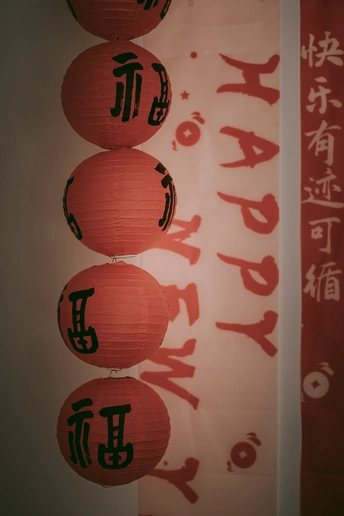 福
福
福
福
HAPPY
NEW
Y
快乐有迹可循